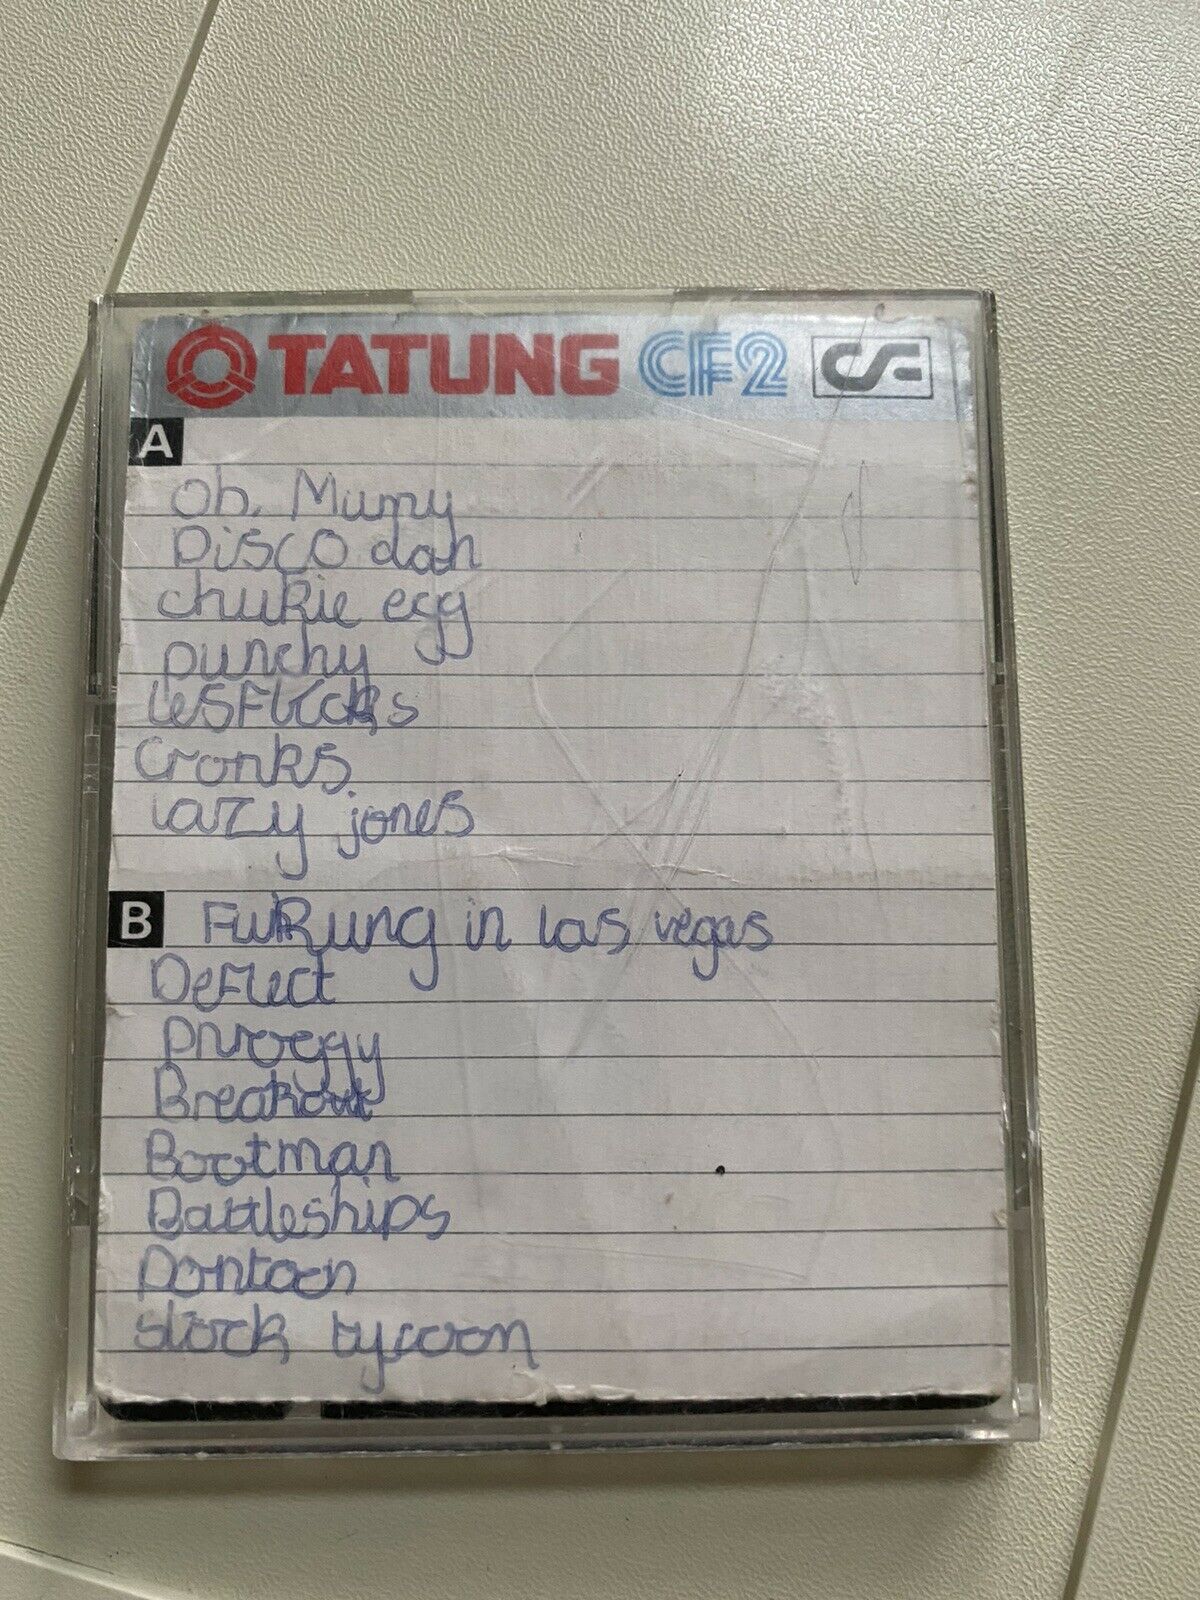 TATUNG CF2 CF
A
Oh. Mumy
Disco dan
chukie egg
punchy
lesFlicks
Cronks
lazy jones
B in las vegas
Deflect
phroggy
Breakout
Bootman
Battleships
Pontoon
stock tycoon